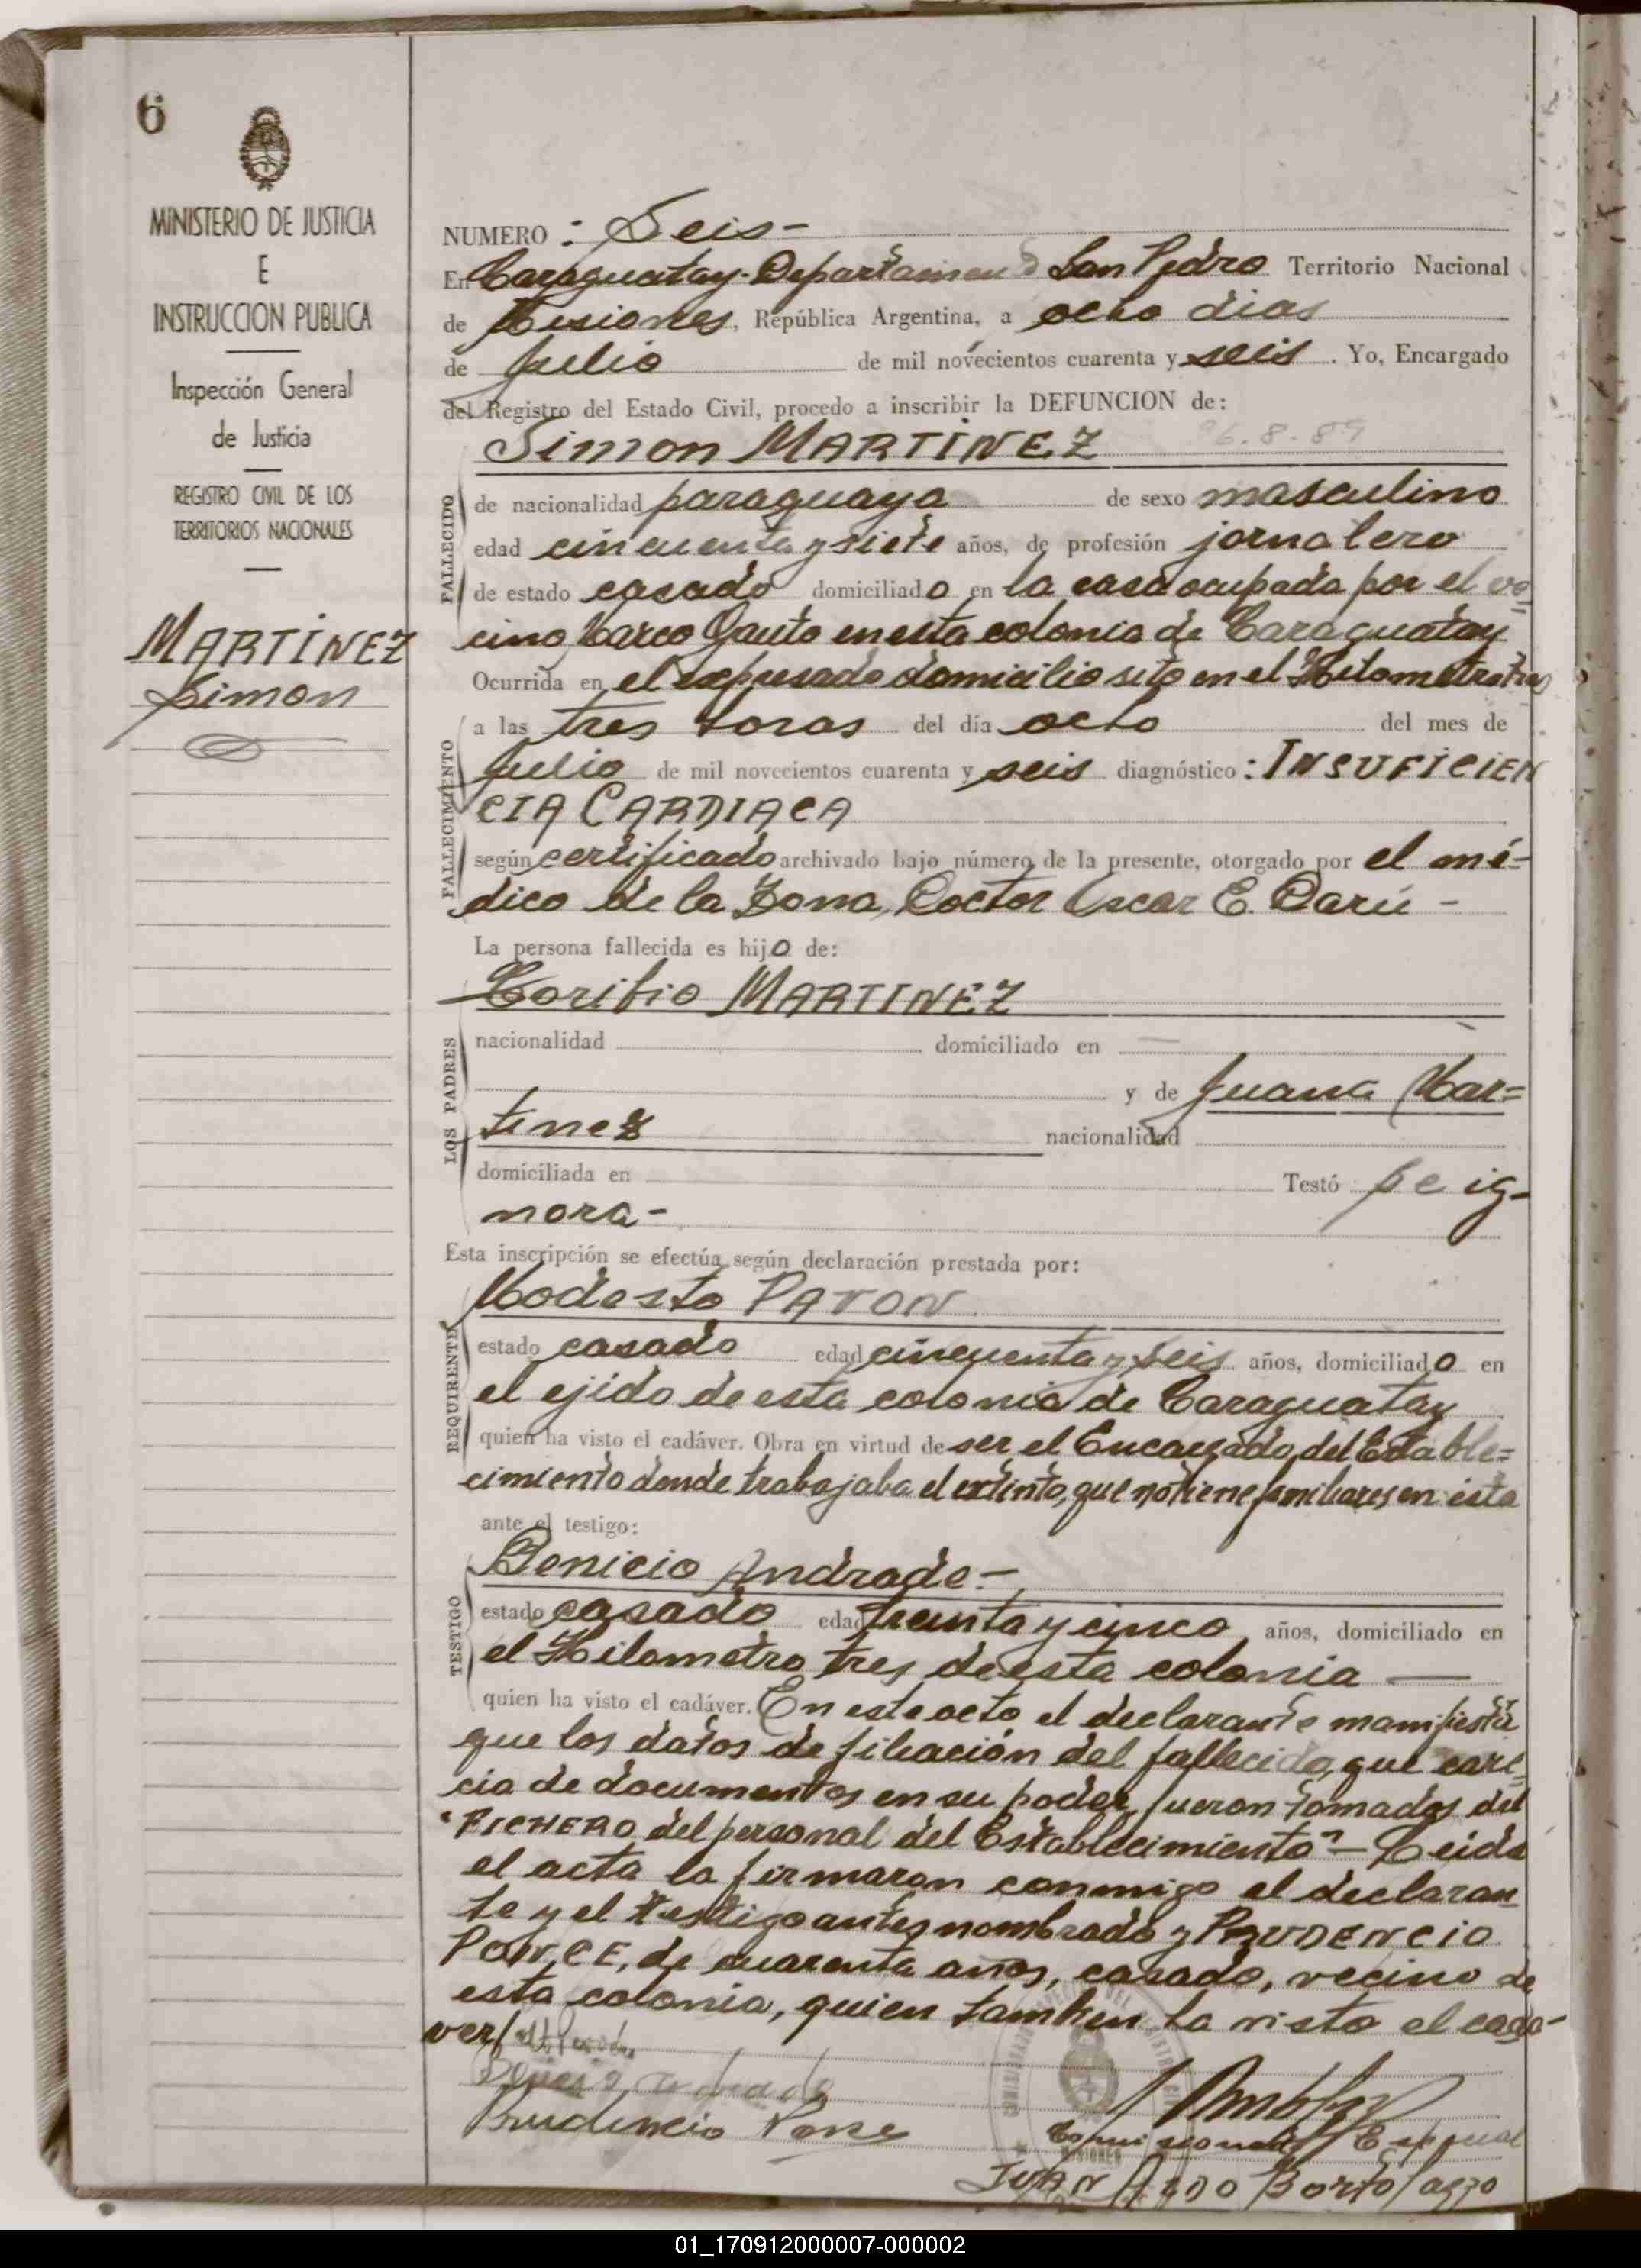 6
MINISTERIO DE JUSTICIA
E
INSTRUCCION PUBLICA
Inspección General
de Justicia
REGISTRO CIVIL DE LOS
TERRITORIOS NACIONALES
MARTINEZ
Simon
NUMERO : Seis-
En Caraguatay-Departamento San Pedro Territorio Nacional
de Misiones, República Argentina, a ocho dias
de Julio de mil novecientos cuarenta y seis. Yo, Encargado
del Registro del Estado Civil, procedo a inscribir la DEFUNCION de:
Simon MARTINEZ
FALLECIDO
de nacionalidad paraguaya de sexo masculino
edad cincuenta y siete años, de profesión jornalero
de estado casado domiciliado en la casa ocupada por el ve=
cino Marco Gauto en esta colonia de Caraguatay
Ocurrida en el expresado domicilio sito en el Kilometro tres
FALLECIMIENTO
a las tres horas del día ocho del mes de
Julio de mil novecientos cuarenta y seis diagnóstico: INSUFICIEN
CIA CARDIACA
según certificado archivado bajo número de la presente, otorgado por el mé-
dico de la Zona, Doctor Oscar E. Darú -
La persona fallecida es hijo de:
Toribio MARTINEZ
LOS PADRES
nacionalidad domiciliado en
y de Juana Mar=
tinez nacionalidad
domiciliada en Testó se ig-
nora-
Esta inscripción se efectúa según declaración prestada por:
Modesto PAVON
REQUIRENTE
estado casado edad cincuenta y seis años, domiciliado en
el ejido de esta colonia de Caraguatay
quien ha visto el cadáver. Obra en virtud de ser el Encargado del Estable=
cimiento donde trabajaba el extinto, que no tiene familiares en ésta
ante el testigo:
Benicio Andrade.-
TESTIGO
estado casado edad treinta y cinco años, domiciliado en
el Kilometro tres de esta colonia —
quien ha visto el cadáver. En este acto el declarante manifiesta
que los datos de filiación del fallecido, que care=
cia de documentos en su poder, fueron tomados del
"FICHERO del personal del Establecimiento"- Leida
el acta la firmaron conmigo el declaran
te y el testigo antes nombrado y PRUDENCIO
PONCE, de cuarenta años, casado, vecino de
esta colonia, quien tambien ha visto el cada-
ver/
Prudencio Ponse
MISIONES
JUAN
01_170912000007-000002